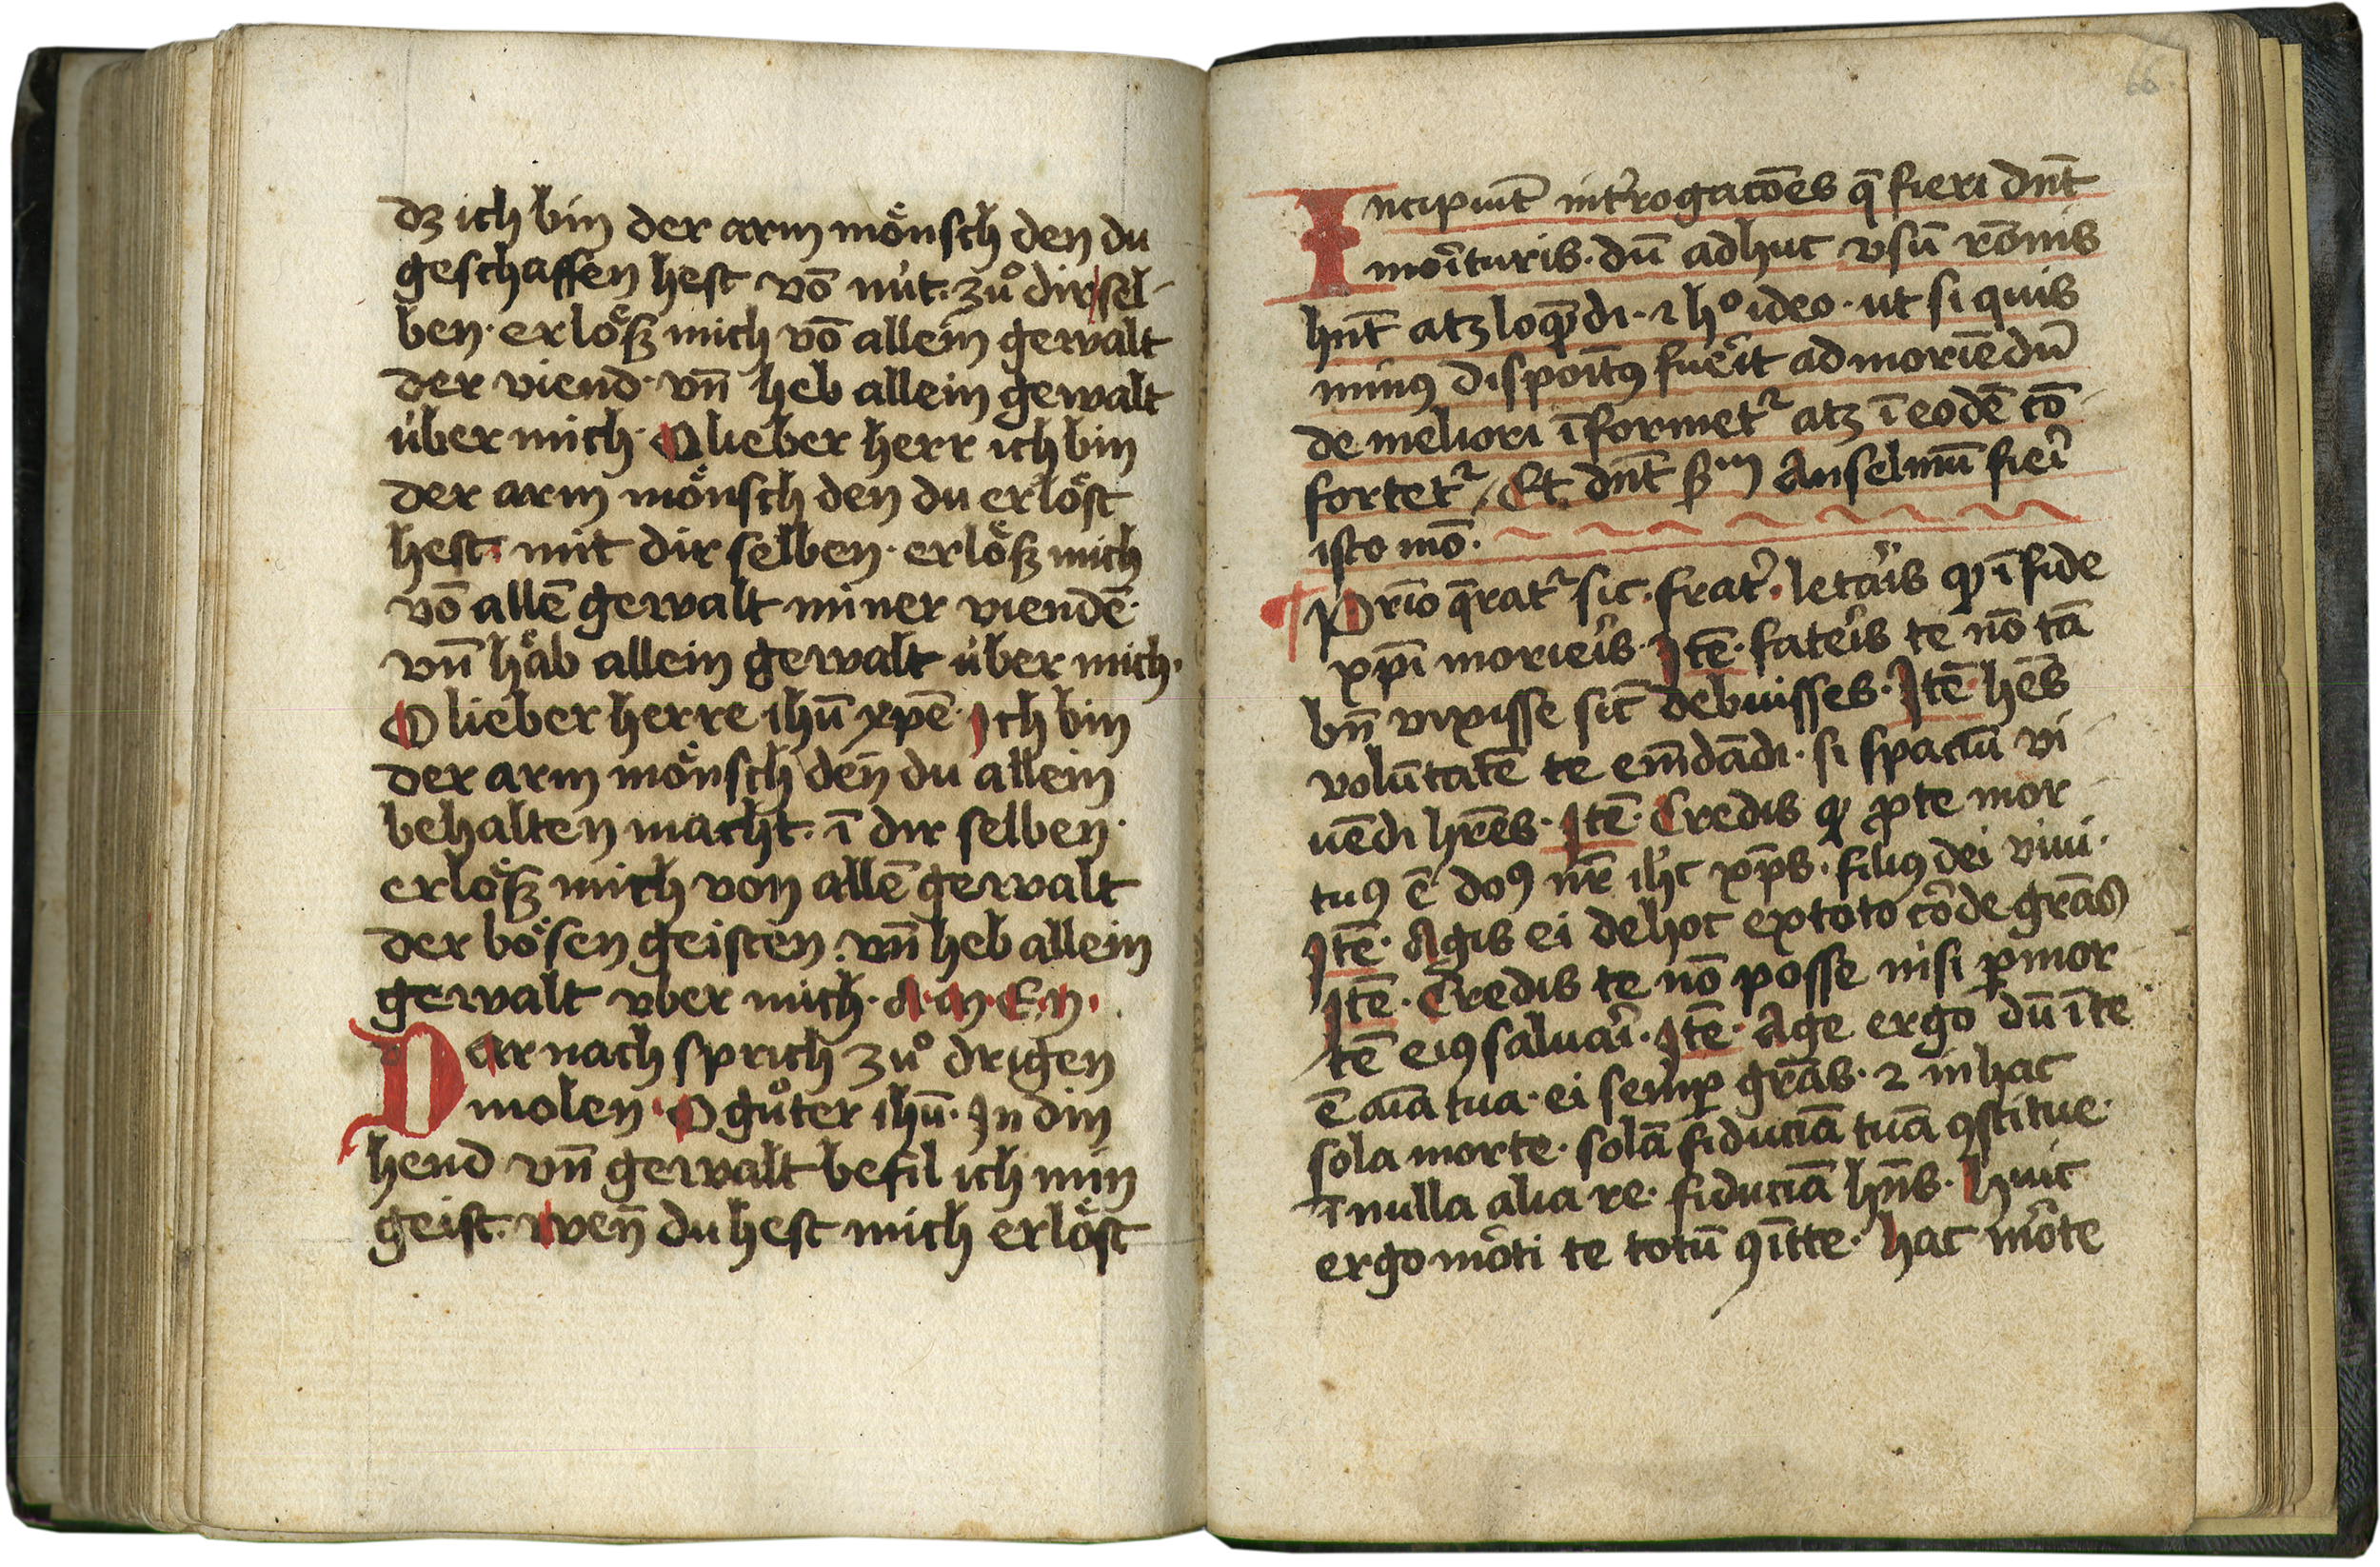 dʒ ich bin der arm moͤnsch den du
geschaffen hest vō nút. zů dir sel-
ben. erloͤß mich vō allein gewalt
der viend. vn̄ heb allein gewalt
úber mich. O lieber herr ich bin
der arm moͤnsch den du erloͤst
hest. mit dir selben. erloͤß mich
vō allē gewalt miner viendē.
vn̄ haͤb allein gewalt úber mich.
O lieber herre ihū xpē. Ich bin
der arm moͤnsch den̄ du allein
behalten macht. ī dir selben.
erloͤß mich von allē gewalt
der boͤsen geisten. vn̄ heb allein
gewalt vber mich. A.m.E.n.
Darnach sprich zů drigen
molen. O gůter ihū. In din
hend vn̄ gewalt befil ich min
geist. wen̄ du hest mich erloͤst
66.
Incipiūt int̓rogacōes q̄ fieri dn̄t
moīturis. dū adhuc vsū rōnis
hn̄t atʒ loqūdi. ⁊ hº ideo. ut si quis
minꝰ dispoītꝰ fueīt ad moriēdū
de meliori īformet᷑ atʒ ī eodē cō
fortet᷑ / Et dn̄t ẜm Anselmū fieī
isto mō.
¶ Prīo q̄rat᷑ sic. frat̓. letaīs ꝙ ī fide
xp̄i morieīs. Itē. fateīs te nō tā
bn̄ vixisse sīc debuisses. Itē hēs
volūtatē te em̄dādi. si spaciū vi
uēdi hr̄es. Itē. Credis ꝙ ꝓ te mor
tuꝰ ē dn̄s nr̄ ihc̄ xp̄s. filiꝰ dei viui.
Itē. Agis ei de hoc ex toto cōde gr̄as
Itē. Credis te nō posse nisi ꝑ mor
tē eiꝰ saluaī. Itē. Age ergo dū ī te
ē aīa tua. ei semꝑ gr̄as. ⁊ in hac
sola morte. solā fiduciā tuā ꝯstitue.
ī nulla alia re. fiduciā hn̄s. huic
ergo mōti te totū ꝯītte. hac mōte